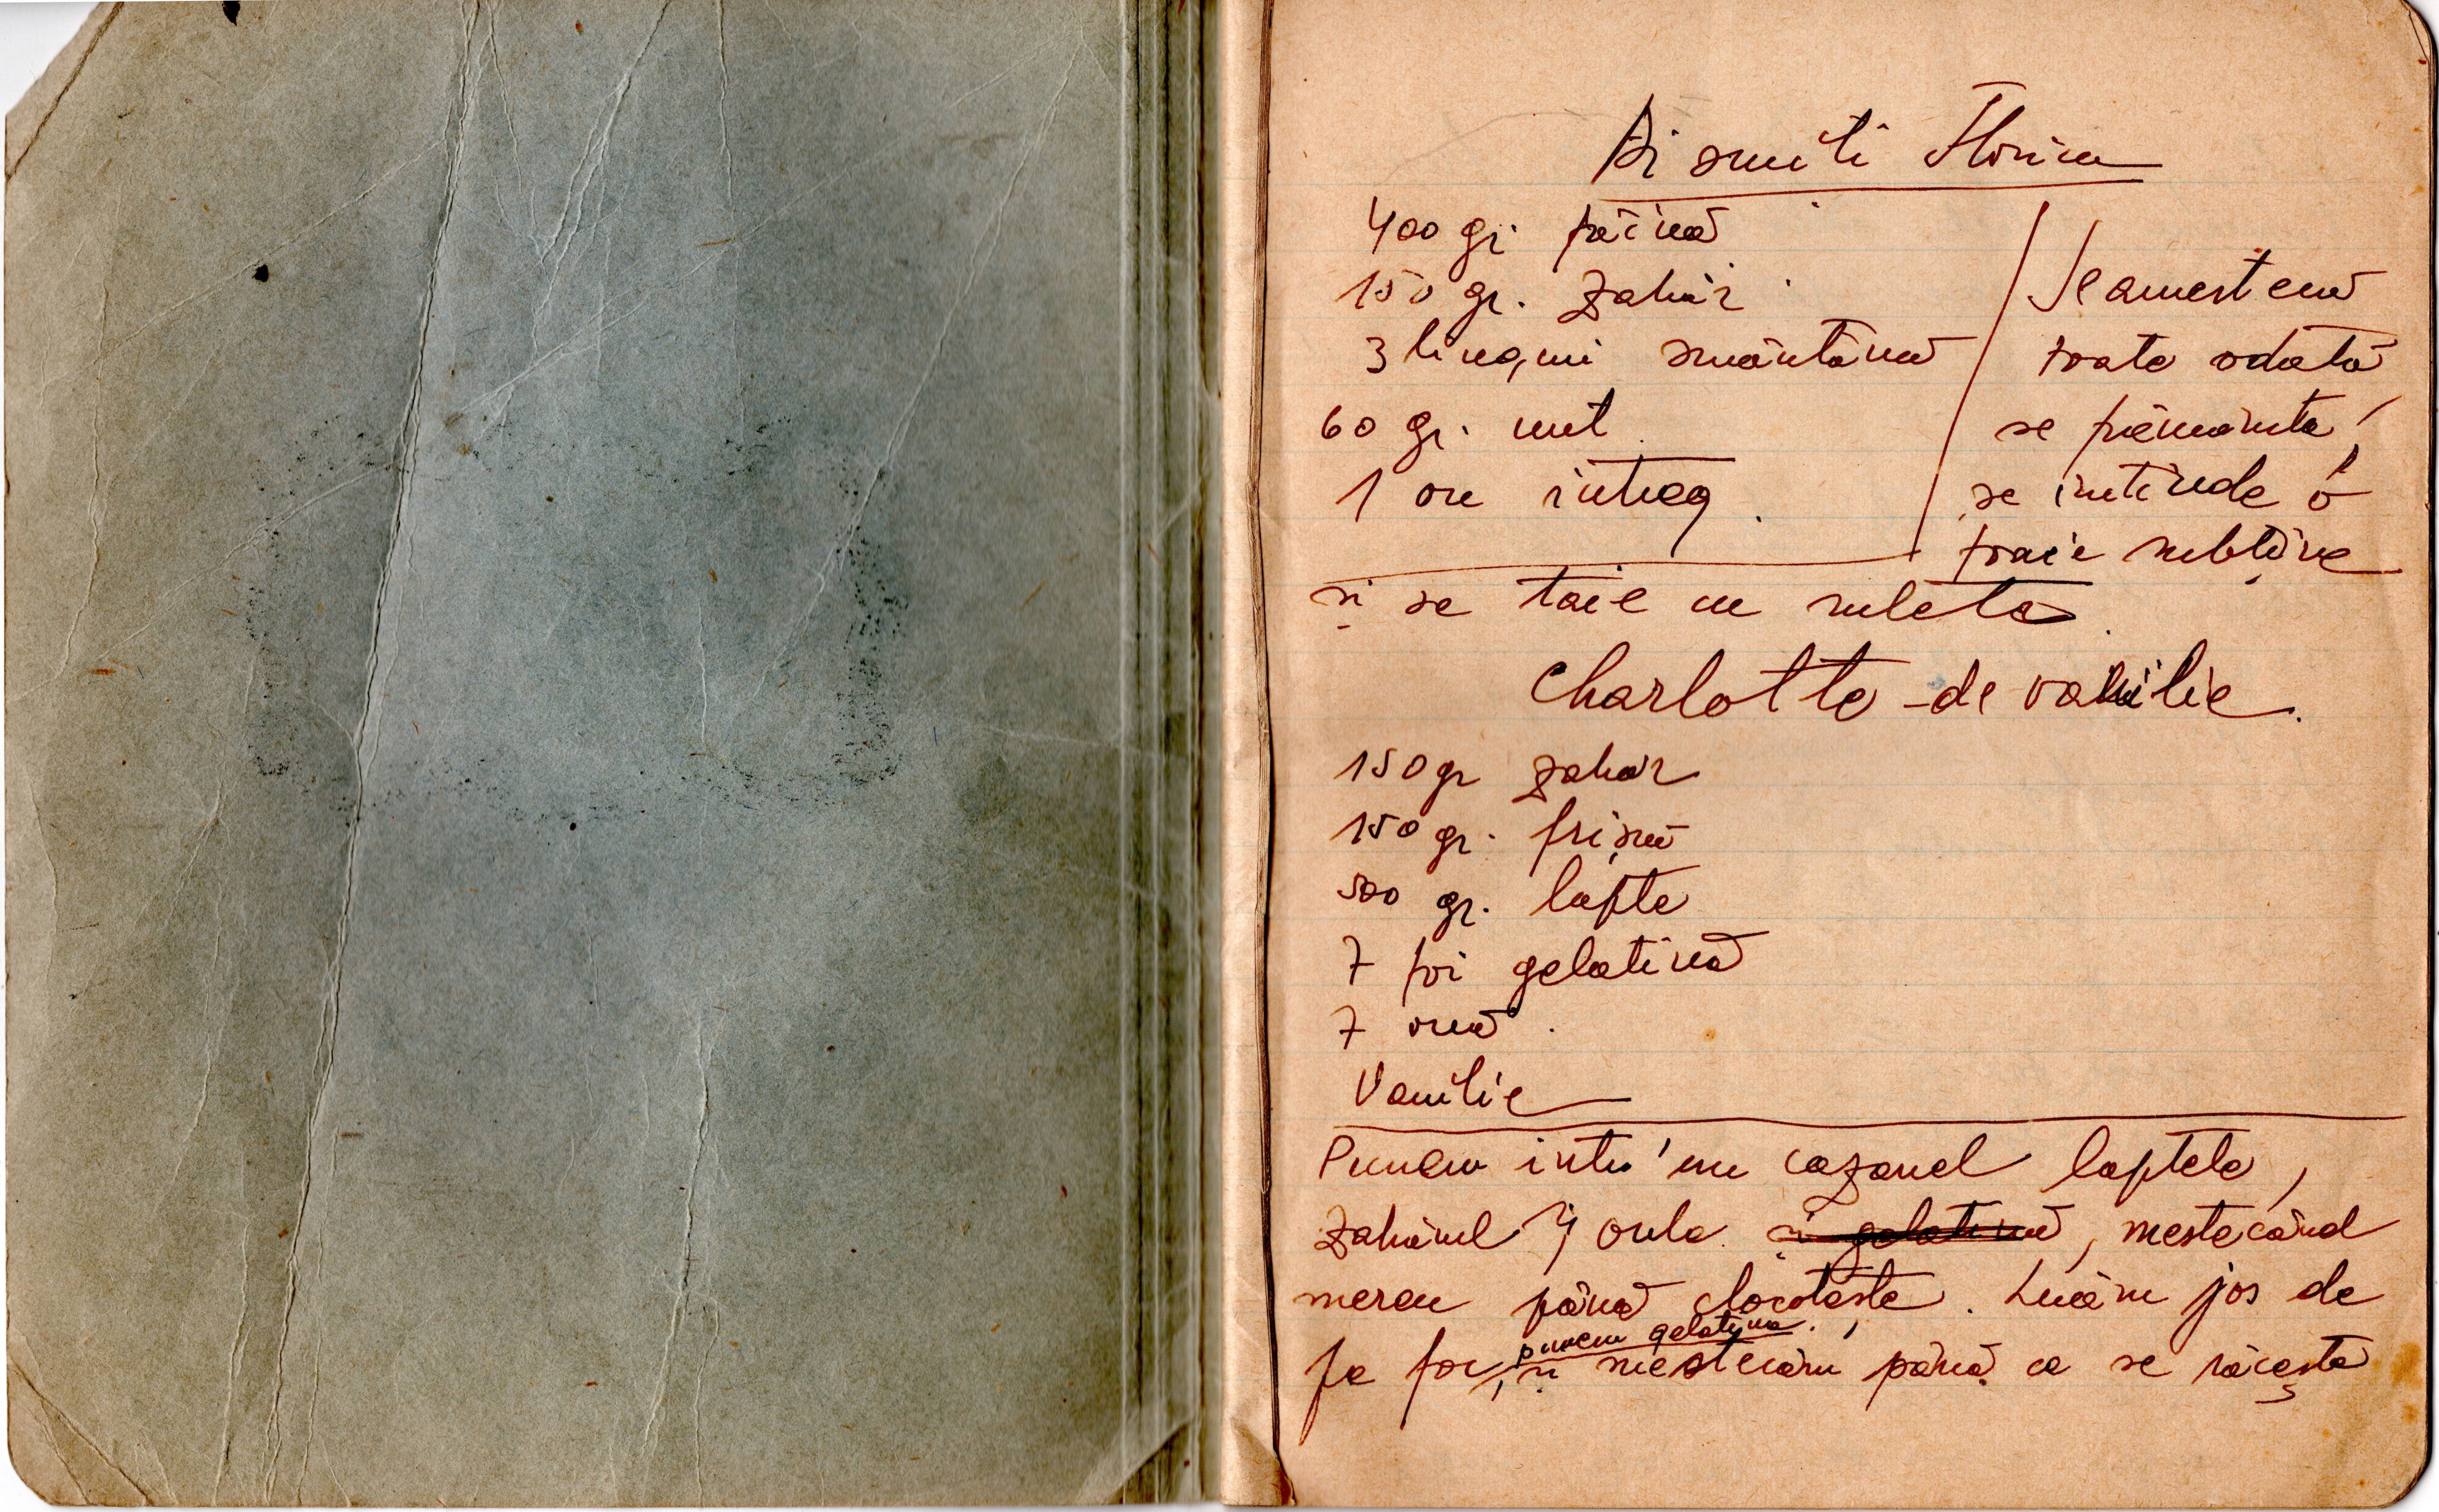 Bi smiti Florica
400 gr. făină
150 gr. zahăr
3 linguri smântână
60 gr. unt
1 ou intreg
Se amestecă
toate odată
se frământă,
se intinde o
foaie subțire
și se taie cu ruleta
Charlotte de vanilie.
150 gr zahăr
150 gr. frișcă
500 gr. lapte
7 foi gelatină
7 ouă.
Vanilie
Punem intr'un cazanel laptele,
zahărul și oule. și gelatină, mestecând
mereu până clocotește. Luăm jos de
punem gelatina.
pe foc, și mestecăm până ce se răcește